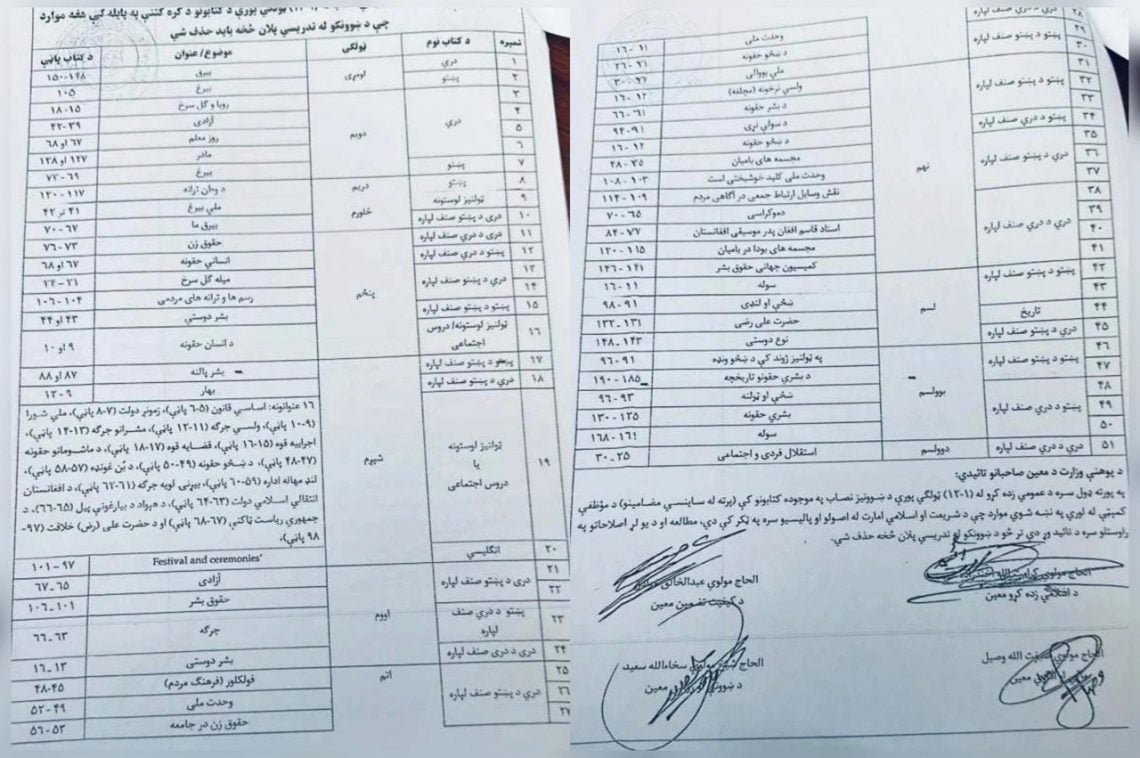 پورې د کتابونو د کره کتنې په پایله کې هغه موارد
چې د ښوونکو له تدریسي پلان څخه باید حذف شي
نمبره د کتاب نوم ټولګی موضوع/عنوان د کتاب پاڼې
۱ دري لومړی بیرق ۱۴۸-۱۵۰
۲ پښتو بیرغ ۱۰۵
۳ دري دویم رویا و گل سرخ ۱۵-۱۸
۴ آزادی ۳۹-۴۲
۵ روز معلم ۶۷ او ۶۸
۶ مادر ۱۲۷ او ۱۲۸
۷ پښتو بیرغ ۶۹-۷۲
۸ پښتو دریم د وطن ترانه ۱۱۷-۱۲۰
۹ ټولنیز لوستونه څلورم ملي بیرغ ۴۱ تر ۴۲
۱۰ دری د پښتو صنف لپاره بیرق ما ۶۷-۷۰
۱۱ دری د دري صنف لپاره پنځم حقوق زن ۷۳-۷۶
۱۲ پښتو د دري صنف لپاره انساني حقونه ۶۷ او ۶۸
۱۳ دري د پښتو صنف لپاره میله گل سرخ ۲۱-۲۴
۱۴ رسم ها و ترانه های مردمی ۱۰۴-۱۰۶
۱۵ پښتو د پښتو صنف لپاره بشر دوستي ۴۳ او ۴۴
۱۶ ټولنیز لوستونه/ دروس اجتماعی د انسان حقونه ۹ او ۱۰
۱۷ پښتو د پښتو صنف لپاره شپږم بشر پالنه ۸۷ او ۸۸
۱۸ دري د پښتو صنف لپاره بهار ۹-۱۲
۱۹ ټولنیز لوستونه یا دروس اجتماعی
۱۶ عنوانونه: اساسي قانون (۵-۶ پاڼې)، زمونږ دولت (۷-۸ پاڼې)، ملي شورا
(۹-۱۰ پاڼې)، ولسي جرګه (۱۱-۱۲ پاڼې)، مشرانو جرګه (۱۳-۱۴ پاڼې)،
اجراییه قوه (۱۵-۱۶ پاڼې)، قضایه قوه (۱۷-۱۸ پاڼې)، د ماشومانو حقونه
(۴۷-۴۸ پاڼې)، د ښځو حقونه (۴۹-۵۰ پاڼې)، د بُن غونډه (۵۷-۵۸ پاڼې)،
لنډ مهاله اداره (۵۹-۶۰ پاڼې)، بیړنی لویه جرګه (۶۱-۶۲ پاڼې)، د افغانستان
انتقالي اسلامي دولت (۶۳-۶۴ پاڼې)، د هیواد د بیارغونې پیل (۶۵-۶۶)، د
جمهوري ریاست ټاکنې (۶۷-۶۸ پاڼې) او د حضرت علی (رض) خلافت (۹۷-
۹۸ پاڼې)،
۲۰ انګلیسي اووم Festival and ceremonies’ ۹۷-۱۰۱
۲۱ دری د پښتو صنف لپاره آزادی ۶۵-۶۷
۲۲ حقوق بشر ۱۰۱-۱۰۶
۲۳ پښتو د دري صنف لپاره جرګه ۶۳-۶۶
۲۴ دری د دری صنف لپاره بشر دوستی ۱۳-۱۶
۲۵ دري د پښتو صنف لپاره اتم فولکلور (فرهنگ مردم) ۴۵-۴۸
۲۶ وحدت ملی ۴۹-۵۲
۲۷ حقوق زن در جامعه ۵۳-۵۶
۲۸ دري د دري صنف لپاره وحدت ملی ۱۱-۱۶
۲۹ پښتو د پښتو صنف لپاره د ښځو حقونه ۲۱-۲۶
۳۰ ملي یووالی
۳۱ پښتو د پښتو صنف لپاره نهم ولسي نرخونه (مچلغه) ۱۲-۱۶
۳۲ د بشر حقونه ۶۱-۶۶
۳۳ د سولې نړۍ ۹۱-۹۴
۳۴ پښتو د دري صنف لپاره د ښځو حقونه ۱۲-۱۶
۳۵ دري د پښتو صنف لپاره مجسمه های بامیان ۴۵-۴۸
۳۶ وحدت ملی کلید خوشبختی است ۱۰۳-۱۰۸
۳۷ نقش وسایل ارتباط جمعی در آگاهی مردم ۱۰۹-۱۱۴
۳۸ دري د دري صنف لپاره دموکراسی ۶۵-۷۰
۳۹ استاد قاسم افغان پدر موسیقی افغانستان ۷۷-۸۴
۴۰ مجسمه های بودا در بامیان ۱۱۵-۱۲۰
۴۱ کمیسیون جهانی حقوق بشر ۱۴۱-۱۴۶
۴۲ پښتو د پښتو صنف لپاره لسم سوله ۱۱-۱۶
۴۳ ښځې او لنډۍ ۹۱-۹۸
۴۴ تاریخ حضرت علی رضی ۱۳۱-۱۳۲
۴۵ دري د پښتو صنف لپاره نوع دوستی ۱۴۳-۱۴۸
۴۶ پښتو د پښتو صنف لپاره یوولسم په ټولنیز ژوند کې د ښځو ونډه ۹۱-۹۶
۴۷ د بشري حقونو تاریخچه ۱۸۵-۱۹۰
۴۸ پښتو د دري صنف لپاره ښځې او ټولنه ۹۳-۹۶
۴۹ بشري حقونه ۱۲۵-۱۳۰
۵۰ سوله ۱۶۱-۱۶۸
۵۱ دري د دري صنف لپاره دوولسم استقلال فردی و اجتماعی ۲۵-۳۰
د پوهنې وزارت د معین صاحبانو تائیدي:
په پورته ډول سره د عمومي زده کړو له (۱-۱۲) ټولګي پورې د ښوونیز نصاب په موجوده کتابونو کې (پرته له ساینسي مضامینو) د مؤظفې
کمیټې له لوري په نښه شوي موارد چې د شریعت او اسلامي امارت له اصولو او پالیسیو سره په ټکر کې دي، مطالعه او د یو لړ اصلاحاتو په
راوستلو سره د تائید وړ دي تر څو د ښوونکو له تدریسي پلان څخه حذف شي.
الحاج مولوي کرامت الله
د اسلامي زده کړو معین
الحاج مولوي عبدالخالق
د کیفیت تضمین معین
الحاج مولوي صبغت الله وصیل
معین
الحاج مولوي سخاءالله سعید
د ښوونې او روزنې معین